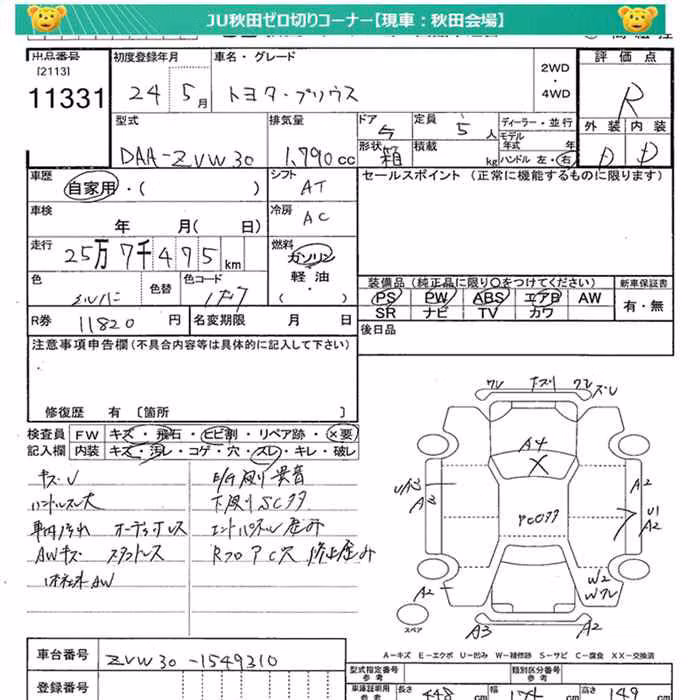 JU秋田ゼロ切りコーナー【現車：秋田会場】
出品番号
[2113]
11331
初度登録年月
24 5月
車名・グレード
トヨタ・プリウス
2WD
・
4WD
評価点
R
外装 内装
D D
型式
DAA-ZVW30
排気量
1,790cc
ドア 5
定員 5人
ディーラー・並行
モデル年式 年
形状 箱
積載 kg
ハンドル 左・右
車歴
自家用・( )
シフト
AT
セールスポイント（正常に機能するものに限ります）
車検
年 月( 日)
冷房
AC
走行
25万7千475km
燃料
ガソリン
軽・油
・
( )
色
シルバー
色替
色コード
1F7
装備品（純正品に限り○をつけてください）
PS PW ABS エアB AW
SR ナビ TV カワ
新車保証書
有・無
R券 11820円
名変期限 月 日
後日品
注意事項申告欄（不具合内容等は具体的に記入して下さい）
修復歴 有 〔箇所 〕
検査員 FW キズ・飛石・ヒビ割・リペア跡・×要
記入欄 内装 キズ・汚レ・コゲ・穴・スレ・キレ・破レ
キズU
ハンドルスレ大
車内汚れ オーディオレス
AWキズ スタッドレス
社外AW
E/G廻り異音
下廻りSCサ
エンドパネル歪み
RフロアC穴 修正歪み
ワレ
ズレ
A4
X
A2
U1
A2
A3
W2
Wワレ
A2
A3
A2
スペア
A－キズ E－エクボ U－凹み W－補修跡 S－サビ C－腐食 XX－交換済
車台番号
ZVW30-1549310
登録番号
型式指定番号
参考
類別区分番号
参考
車庫証明用
参考
長さ 448cm
幅 174cm
高さ 149cm